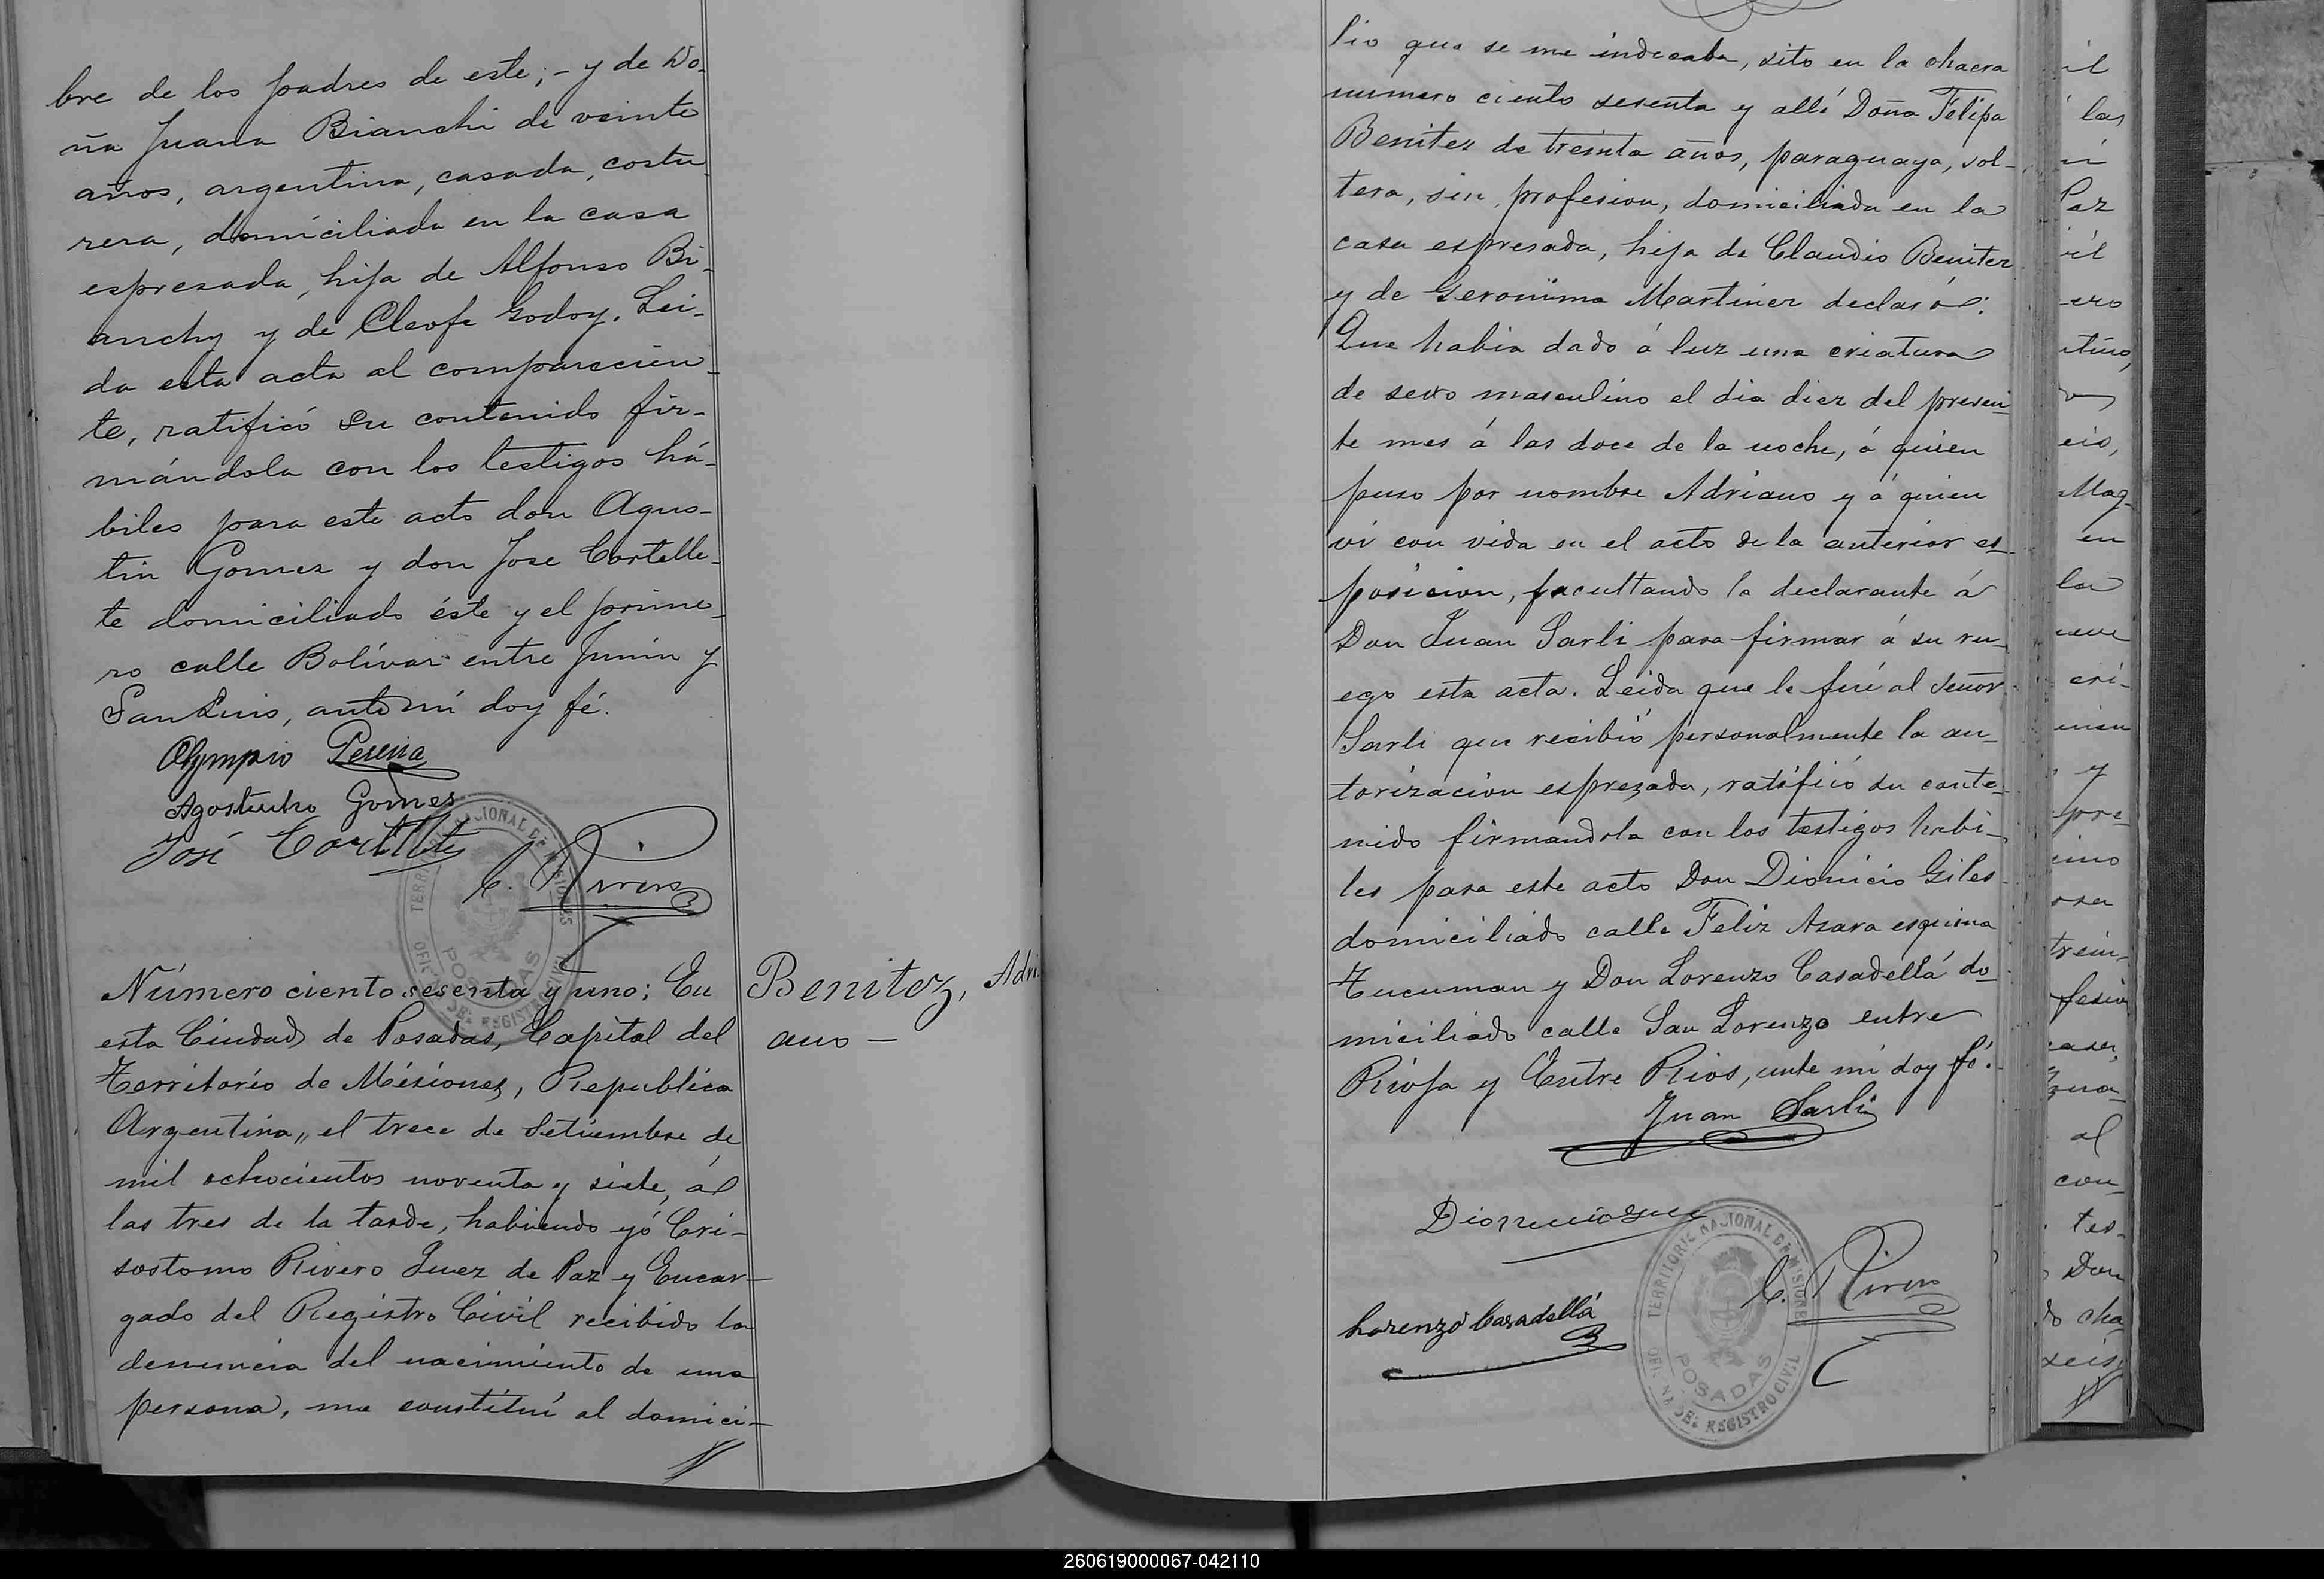 bre de los padres de este; - y de Do-
ña Juana Bianchi de veinte
años, argentina, casada, costu-
rera, domiciliada en la casa
espresada, hija de Alfonso Bi-
anchy y de Cleofe Godoy. Lei-
da esta acta al comparecien-
te, ratificó su contenido fir-
mándola con los testigos há-
biles para este acto don Agus-
tin Gomez y don Jose Cortelle-
te domiciliado éste y el prime-
ro calle Bolívar entre Junin y
San Luis, ante mí doy fé.
Olympio Pereira
Gomes
José
C. Rivero
TERRITORIO NACIONAL DE MISIONES
POSADAS
OFICINA DEL REGISTRO CIVIL
Número ciento sesenta y uno; En
esta Ciudad de Posadas, Capital del
Territorio de Misiones, Republica
Argentina,, el trece de Setiembre de
mil ochocientos noventa y siete, á
las tres de la tarde, habiendo yó Cri-
sostomo Rivero Juez de Paz y Encar-
gado del Registro Civil recibido la
denuncia del nacimiento de una
persona, me constituí al domici-
Benitez, Adri
ano —
lio que se me indicaba, sito en la chacra
numero ciento sesenta y allí Doña Felipa
Benitez de treinta años, paraguaya, sol-
tera, sin profesion, domiciliada en la
casa espresada, hija de Claudio Benitez
y de Geronima Martinez declaró:
Que habia dado á luz una criatura
de sexo masculino el dia diez del presen-
te mes á las doce de la noche, á quien
puso por nombre Adriano y á quien
ví con vida en el acto de la anterior es-
posicion, facultando la declarante á
Don Juan Sarli para firmar á su ru-
ego esta acta. Leida que le fué al Señor
Sarli que recibió personalmente la au-
torizacion espresada, ratificó su conte-
nido firmandola con los testigos habi-
les para este acto Don Dionicio Giles
domiciliado calle Feliz Azara esquina
Tucuman y Don Lorenzo Casadellá do-
miciliado calle San Lorenzo entre
Rioja y Entre Rios, ante mí doy fé.
Juan Sarli
Lorenzo Casadellá
C. Rivero
TERRITORIO NACIONAL DE MISIONES
POSADAS
OFICINA DEL REGISTRO CIVIL
il
las
Paz
ero
cio,
Mag-
en
la
cri-
y
pre-
trein-
fesio
casa,
al
con-
tes-
Don
cha
seis
260619000067-042110